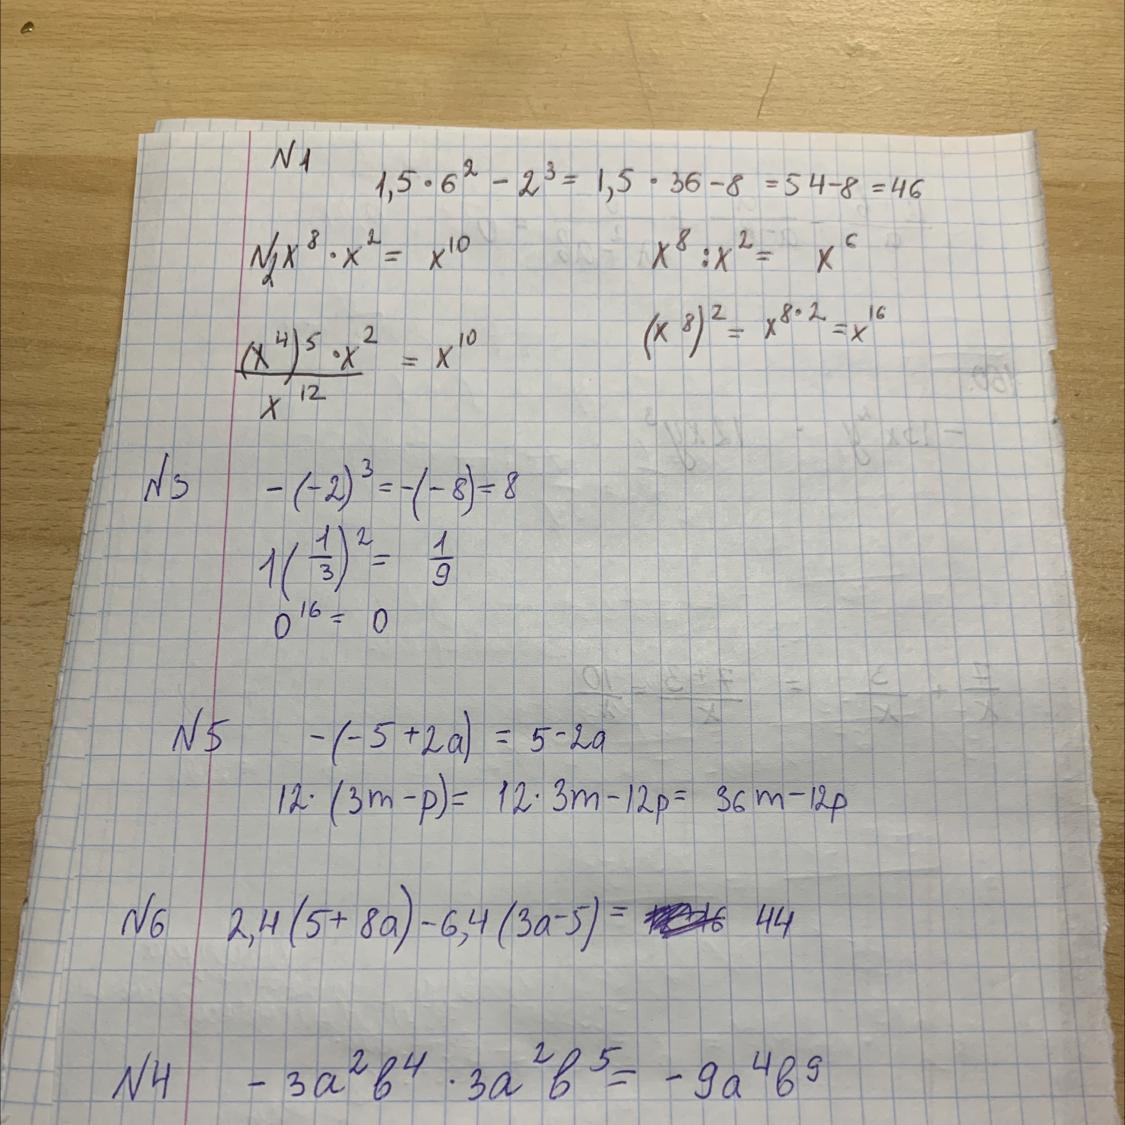 N1
1,5·6² - 2³ = 1,5 · 36 - 8 = 54 - 8 = 46
N2 x⁸ · x² = x¹⁰ x⁸ : x² = x⁶
(x⁸)² = x⁸˙² = x¹⁶
(x⁴)⁵ · x² / x¹² = x¹⁰
N3 -(-2)³ = -(-8) = 8
1(1/3)² = 1/9
0¹⁶ = 0
N5 -(-5+2a) = 5-2a
12·(3m-p) = 12·3m-12p = 36m-12p
N6 2,4(5+8a)-6,4(3a-5) = 44
N4 -3a²b⁴ · 3a²b⁵ = -9a⁴b⁹